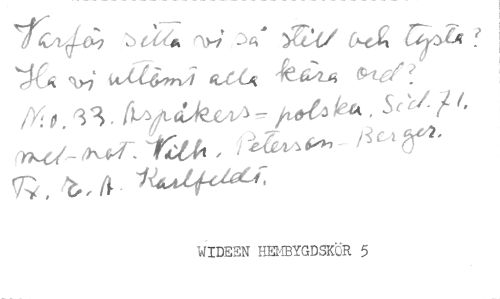 Varför sitta vi så still och tysta?
Ha vi uttömt alla kära ord?
N:o. 33. Aspåkers= polska. Sid. 71.
mel-not. Wilh. Peterson-Berger.
Tx. E. A. Karlfeldt.
WIDEEN HEMBYGDSKÖR 5